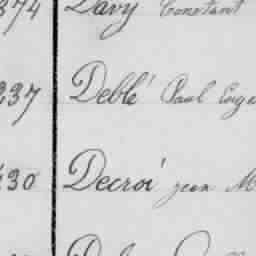 874 Davy Constant
237 Deblé Paul Euge
430 Decroi jean M